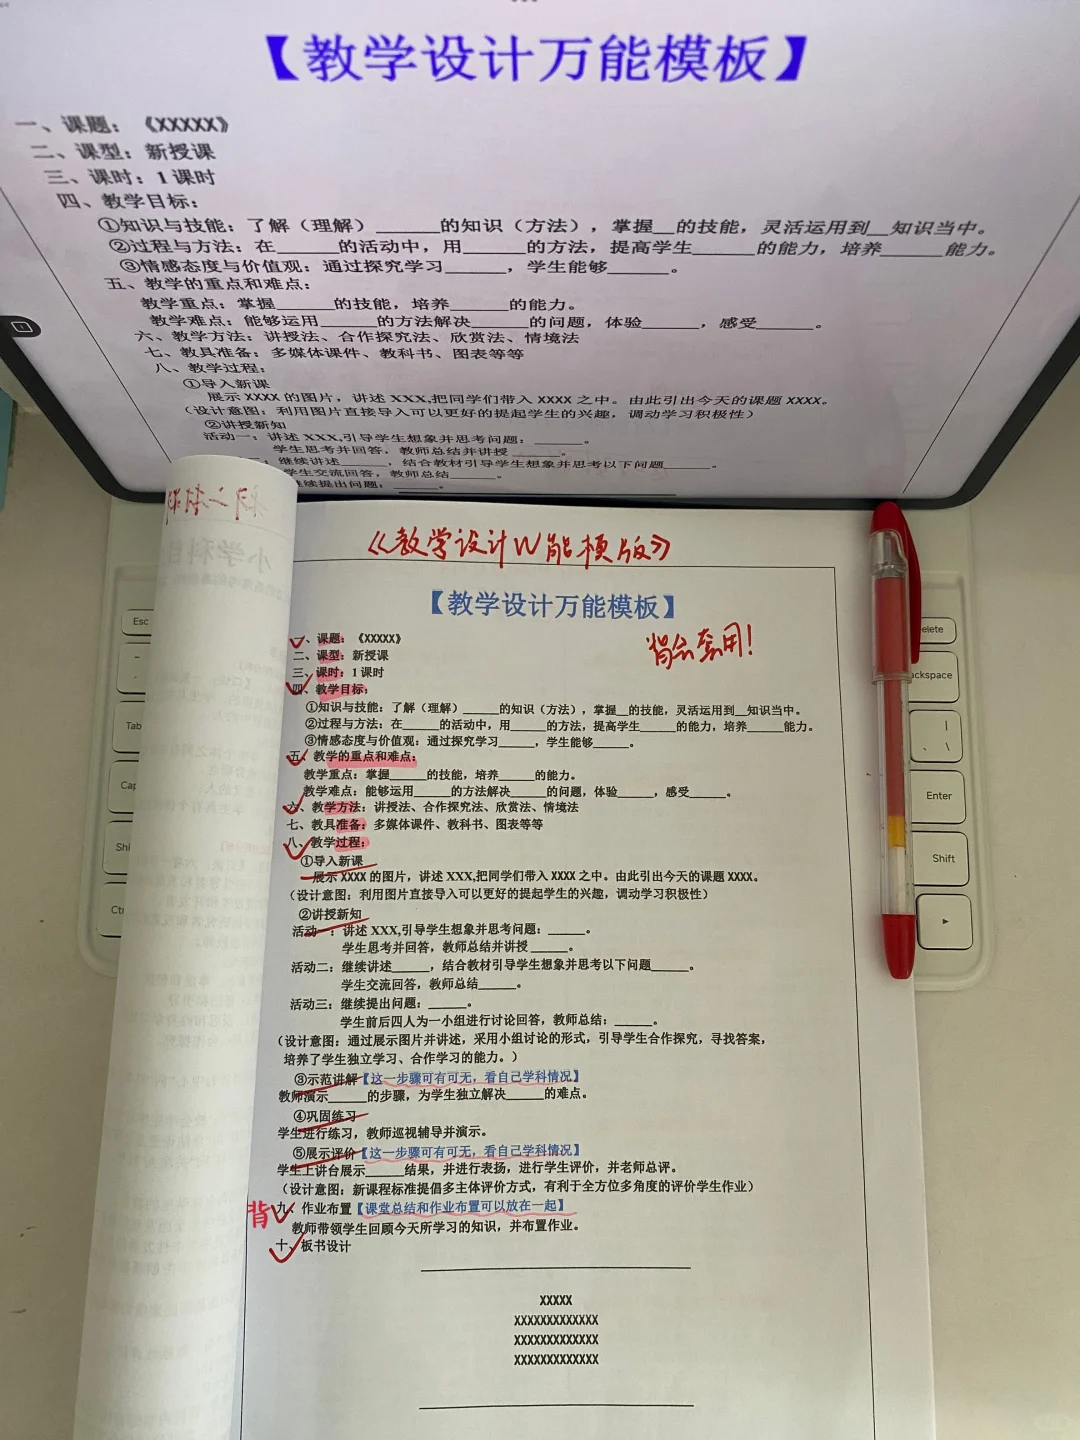 【教学设计万能模板】
一、课题：《XXXXX》
二、课型：新授课
三、课时：1 课时
四、教学目标：
①知识与技能：了解（理解）______的知识（方法），掌握__的技能，灵活运用到__知识当中。
②过程与方法：在______的活动中，用______的方法，提高学生______的能力，培养______能力。
③情感态度与价值观：通过探究学习______，学生能够______。
五、教学的重点和难点：
教学重点：掌握______的技能，培养______的能力。
教学难点：能够运用______的方法解决______的问题，体验______，感受______。
六、教学方法：讲授法、合作探究法、欣赏法、情境法
七、教具准备：多媒体课件、教科书、图表等等
八、教学过程：
①导入新课
展示 XXXX 的图片，讲述 XXX,把同学们带入 XXXX 之中。由此引出今天的课题 XXXX。
（设计意图：利用图片直接导入可以更好的提起学生的兴趣，调动学习积极性）
②讲授新知
活动一：讲述 XXX,引导学生想象并思考问题：______。
学生思考并回答，教师总结并讲授______。
：继续讲述______，结合教材引导学生想象并思考以下问题______。
学生交流回答，教师总结______。
继续提出问题：______。
《教学设计W能模版》
【教学设计万能模板】
背会套用！
一、课题：《XXXXX》
二、课型：新授课
三、课时：1 课时
四、教学目标：
①知识与技能：了解（理解）______的知识（方法），掌握__的技能，灵活运用到__知识当中。
②过程与方法：在______的活动中，用______的方法，提高学生______的能力，培养______能力。
③情感态度与价值观：通过探究学习______，学生能够______。
五、教学的重点和难点：
教学重点：掌握______的技能，培养______的能力。
教学难点：能够运用______的方法解决______的问题，体验______，感受______。
六、教学方法：讲授法、合作探究法、欣赏法、情境法
七、教具准备：多媒体课件、教科书、图表等等
八、教学过程：
①导入新课
展示 XXXX 的图片，讲述 XXX,把同学们带入 XXXX 之中。由此引出今天的课题 XXXX。
（设计意图：利用图片直接导入可以更好的提起学生的兴趣，调动学习积极性）
②讲授新知
活动一：讲述 XXX,引导学生想象并思考问题：______。
学生思考并回答，教师总结并讲授______。
活动二：继续讲述______，结合教材引导学生想象并思考以下问题______。
学生交流回答，教师总结______。
活动三：继续提出问题：______。
学生前后四人为一小组进行讨论回答，教师总结：______。
（设计意图：通过展示图片并讲述，采用小组讨论的形式，引导学生合作探究，寻找答案，
培养了学生独立学习、合作学习的能力。）
③示范讲解【这一步骤可有可无，看自己学科情况】
教师演示______的步骤，为学生独立解决______的难点。
④巩固练习
学生进行练习，教师巡视辅导并演示。
⑤展示评价【这一步骤可有可无，看自己学科情况】
学生上讲台展示______结果，并进行表扬，进行学生评价，并老师总评。
（设计意图：新课程标准提倡多主体评价方式，有利于全方位多角度的评价学生作业）
背
九、作业布置【课堂总结和作业布置可以放在一起】
教师带领学生回顾今天所学习的知识，并布置作业。
十、板书设计
XXXXX
XXXXXXXXXXXXX
XXXXXXXXXXXXX
XXXXXXXXXXXXX
Esc
Tab
Cap
Shi
Ctr
elete
ackspace
Enter
Shift